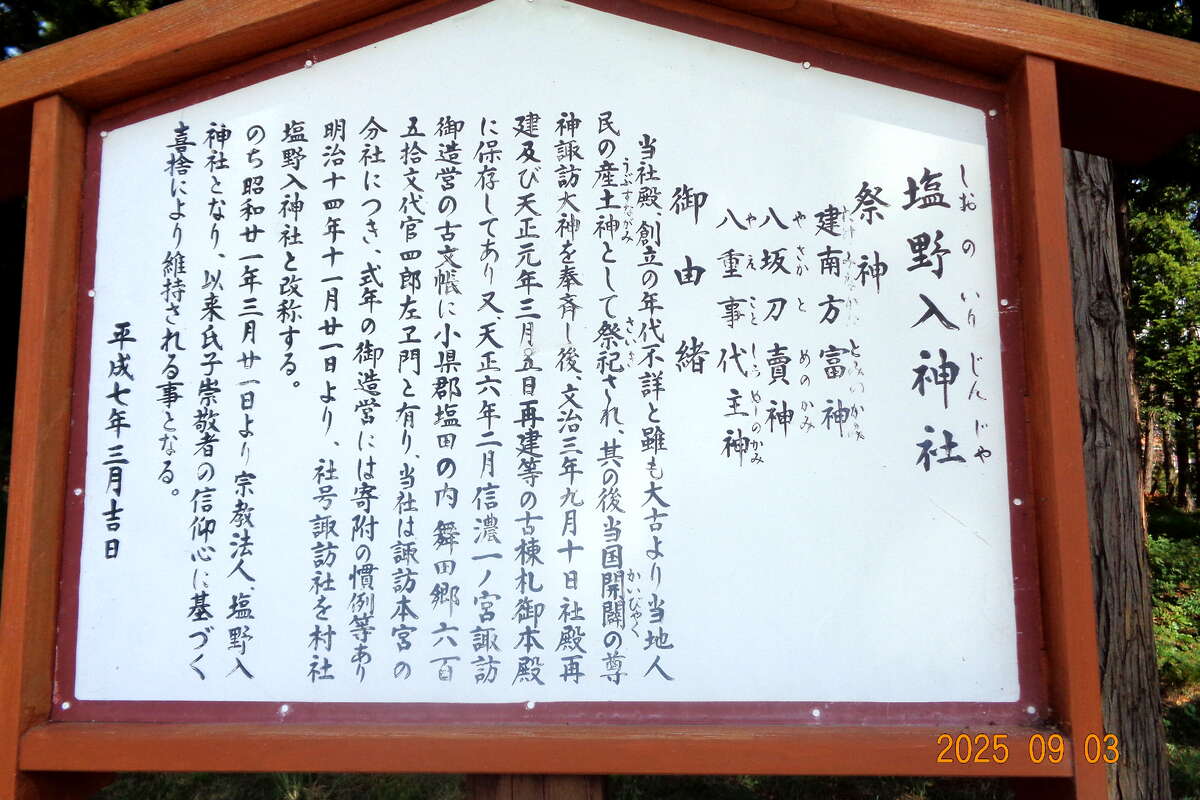 塩野入神社
しおのいりじんじゃ
祭神
建南方富神
八坂刀賣神
やさかとめのかみ
八重事代主神
やえことしろぬしのかみ
御由緒
当社殿、創立の年代不詳と雖も大古より当地人
民の産土神として祭祀され、其の後当国開闢の尊
うぶすながみ
さいし
かいびゃく
神諏訪大神を奉斉し後、文治三年九月十日社殿再
建及び天正元年三月五日再建等の古棟札御本殿
に保存してあり又天正六年二月信濃一ノ宮諏訪
御造営の古文帳に小県郡塩田の内舞田郷六百
五拾文代官四郎左ヱ門と有り、当社は諏訪本宮の
分社につき、式年の御造営には寄附の慣例等あり
明治十四年十一月廿一日より、社号諏訪社を村社
塩野入神社と改称する。
のち昭和廿一年三月廿一日より宗教法人、塩野入
神社となり、以来氏子崇敬者の信仰心に基づく
喜捨により維持される事となる。
平成七年三月吉日
2025 09 03